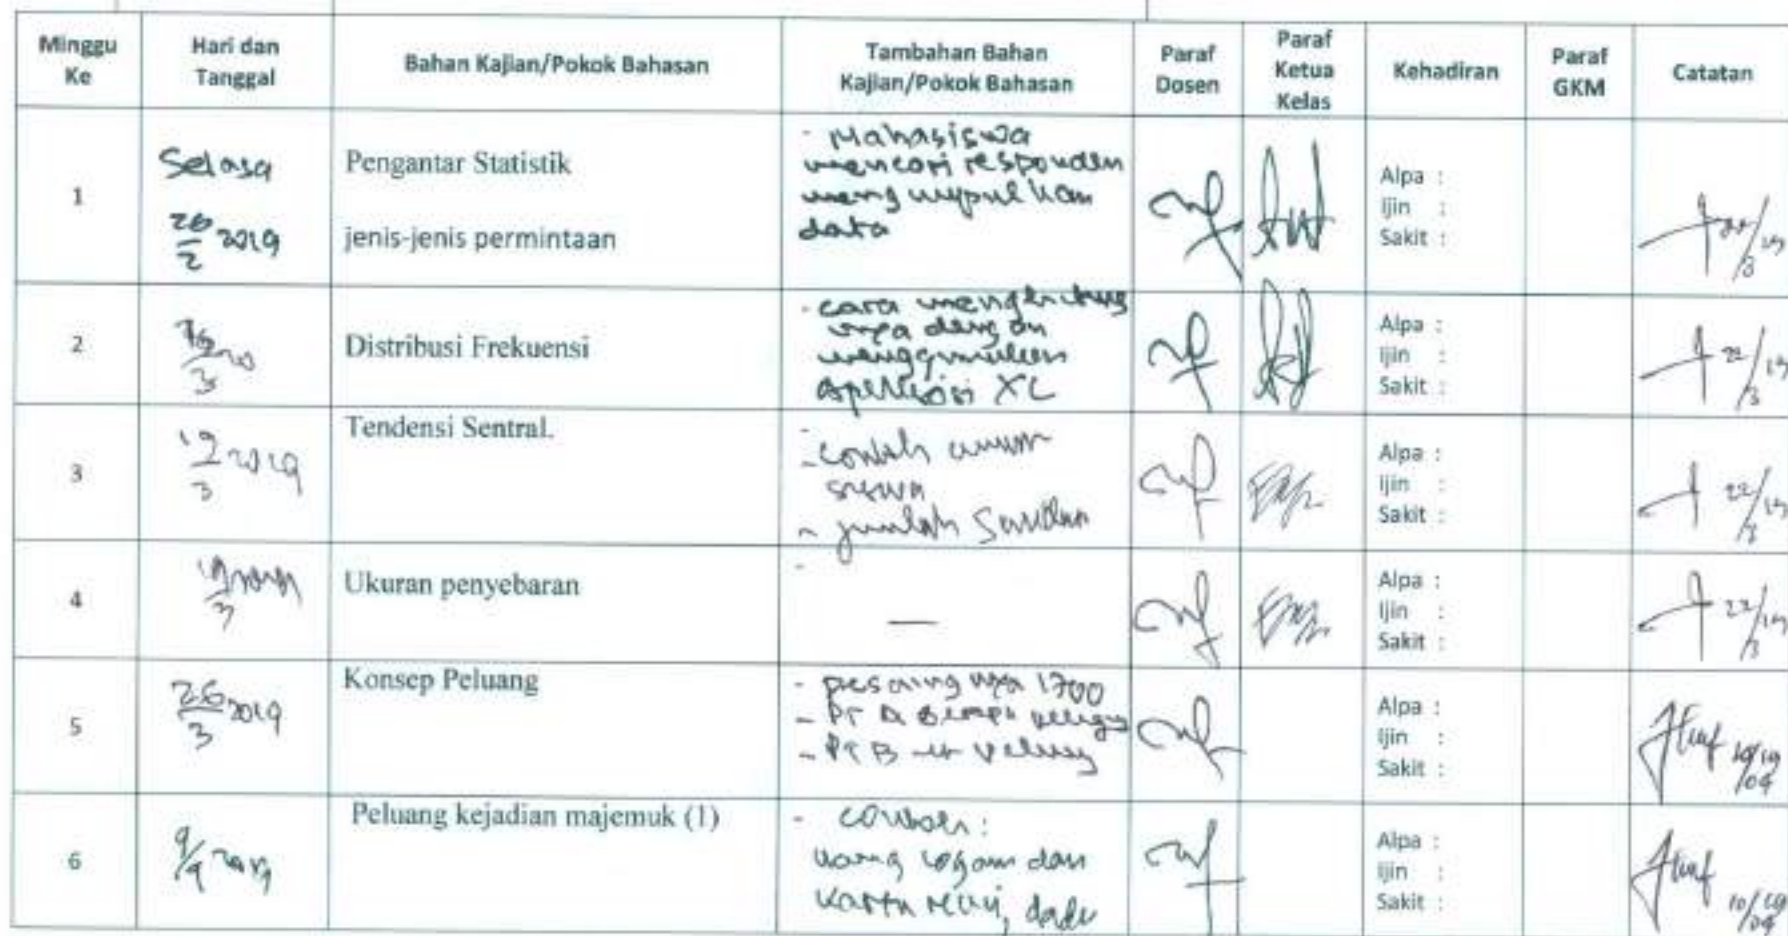 Minggu Ke
Hari dan Tanggal
Bahan Kajian/Pokok Bahasan
Tambahan Bahan Kajian/Pokok Bahasan
Paraf Dosen
Paraf Ketua Kelas
Kehadiran
Paraf GKM
Catatan
1
Selasa
26/2 2019
Pengantar Statistik
jenis-jenis permintaan
- Mahasiswa
mencari responden
mengumpulkan
data
Alpa :
Ijin :
Sakit :
2
Distribusi Frekuensi
- cara menghitung
nya dengan
menggunakan
XL
Alpa :
Ijin :
Sakit :
22/3 19
3
19/3 2019
Tendensi Sentral.
- contoh umur
siswa
- jumlah
Alpa :
Ijin :
Sakit :
22/3 19
4
19/3 2019
Ukuran penyebaran
-
—
Alpa :
Ijin :
Sakit :
22/3 19
5
26/3 2019
Konsep Peluang
- pesaing nya 1700
- PT A
- PT B
Alpa :
Ijin :
Sakit :
6
9/4 2019
Peluang kejadian majemuk (1)
- contoh:
uang logam dan
kartu remi, dadu
Alpa :
Ijin :
Sakit :